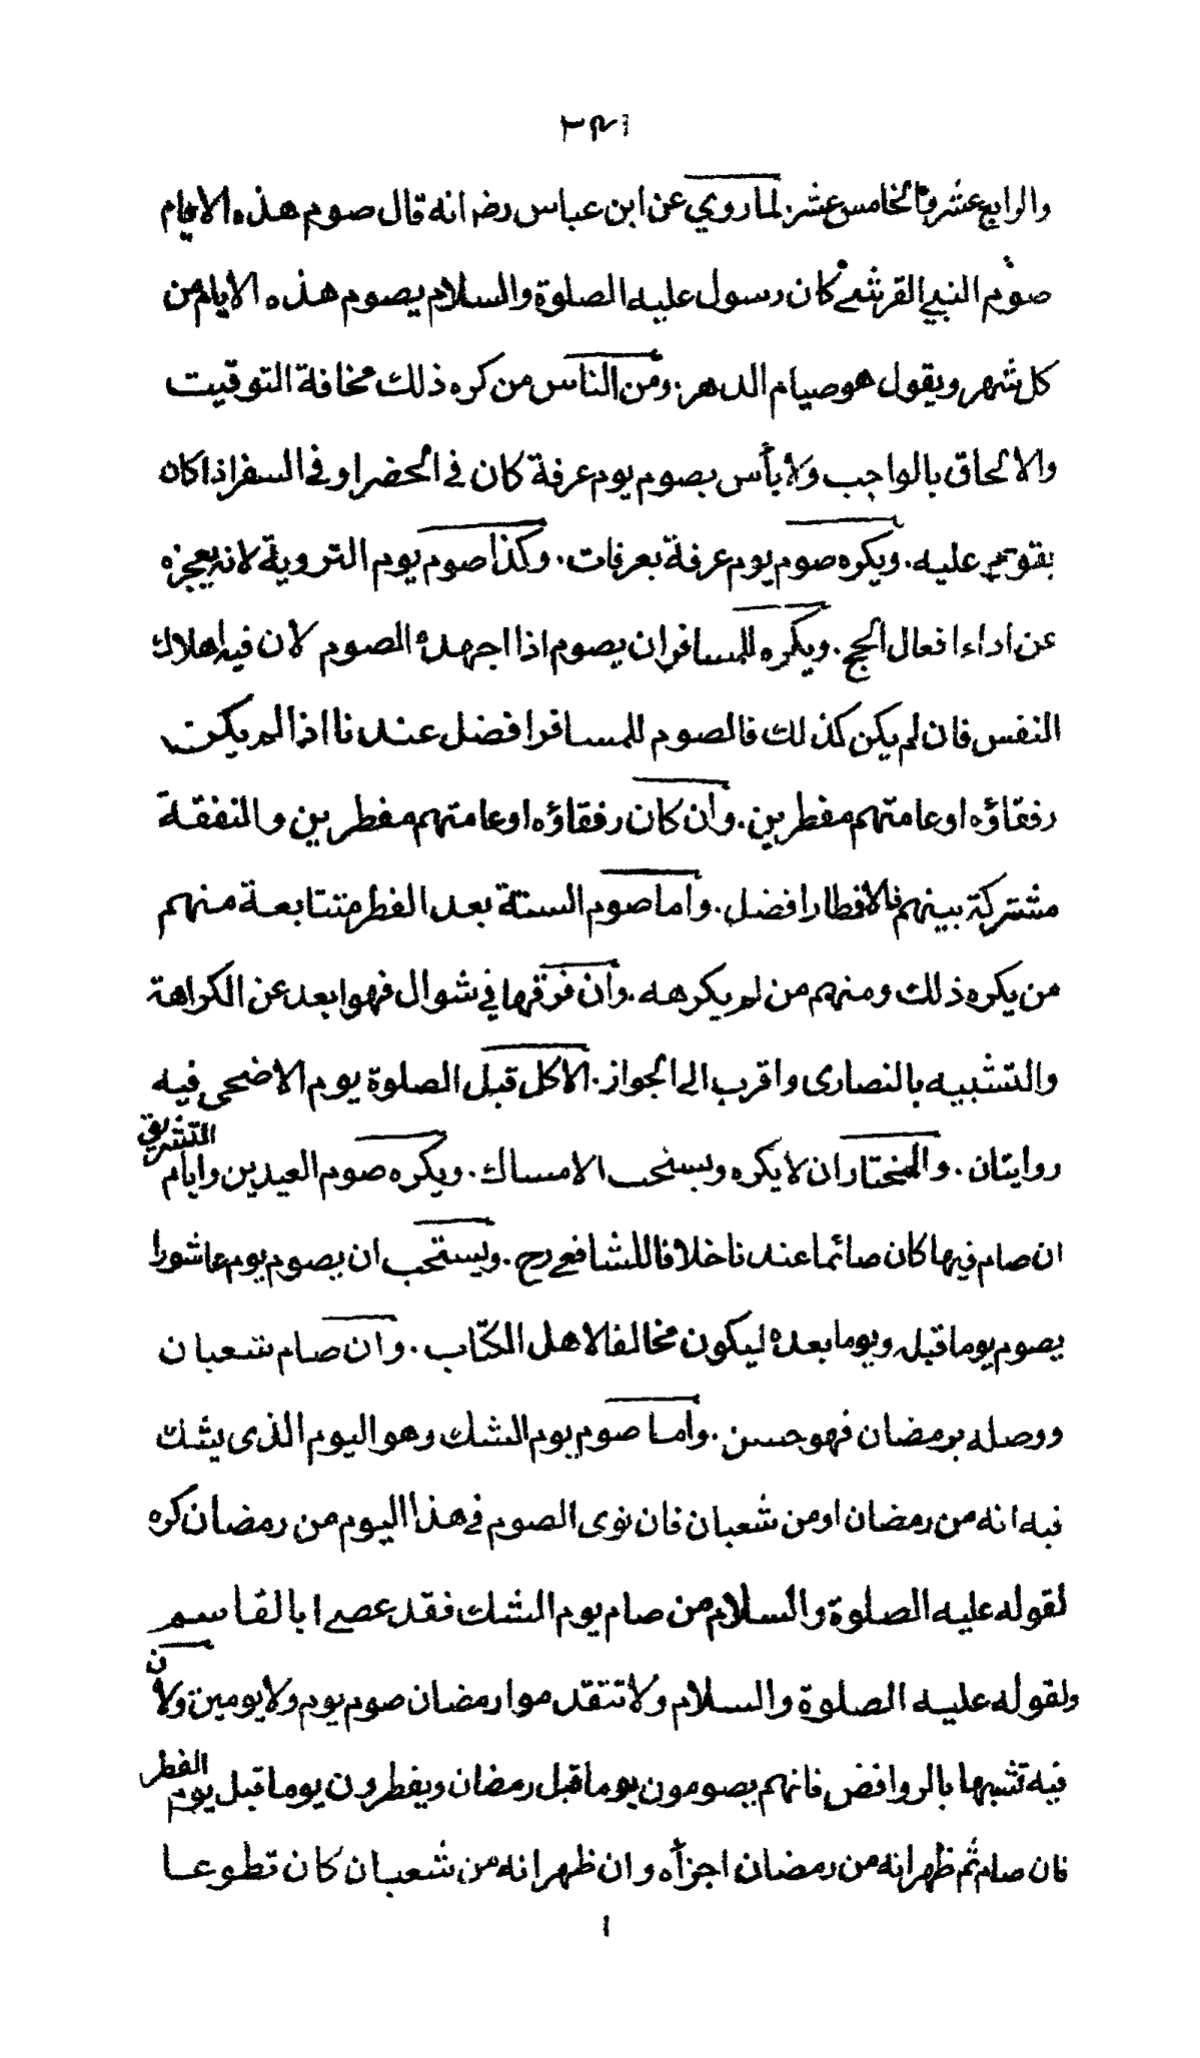 والرابع عشر والخامس عشر. لما روي عن ابن عباس رضه انه قال صوم هذه الايام
صوم النبي القرشي كان رسول عليه الصلوة والسلام يصوم هذه الايام من
كل شهر ويقول هو صيام الدهر. ومن الناس من كره ذلك مخافة التوقيت
والالحاق بالواجب ولا بأس بصوم يوم عرفة كان في الحضر او في السفر اذا كان
بقوي عليه. ويكره صوم يوم عرفة بعرفات. وكذا صوم يوم التروية لانه يعجزه
عن اداء افعال الحج. ويكره للمسافر ان يصوم اذا اجهده الصوم لان فيه اهلاك
النفس فان لم يكن كذلك فالصوم للمسافر افضل عندنا اذا لم يكن
رفقاؤه او عامتهم مفطرين. وان كان رفقاؤه او عامتهم مفطرين والنفقة
مشتركة بينهم فالافطار افضل. واما صوم الستة بعد الفطر متتابعة منهم
من يكره ذلك ومنهم من لم يكرهه. وان فرقها في شوال فهو ابعد عن الكراهة
والتشبيه بالنصارى واقرب الى الجواز. الاكل قبل الصلوة يوم الاضحى فيه
روايتان. والمختار ان لا يكره ويستحب الامساك. ويكره صوم العيدين وايام التشريق
ان صام فيها كان صائما عندنا خلافا للشافعي رح. ويستحب ان يصوم يوم عاشورا
يصوم يوما قبله ويوما بعده ليكون مخالفا لاهل الكتاب. وان صام شعبان
ووصله برمضان فهو حسن. واما صوم يوم الشك وهو اليوم الذى يشك
فيه انه من رمضان او من شعبان فان نوى الصوم في هذا اليوم من رمضان كره
لقوله عليه الصلوة والسلام من صام يوم الشك فقد عصى ابا القاسم
ولقوله عليه الصلوة والسلام ولا تتقدموا رمضان صوم يوم ولا يومين ولان
فيه تشبها بالروافض فانهم يصومون يوما قبل رمضان ويفطرون يوما قبل يوم الفطر
فان صام ثم ظهر انه من رمضان اجزأه وان ظهر انه من شعبان كان تطوعا